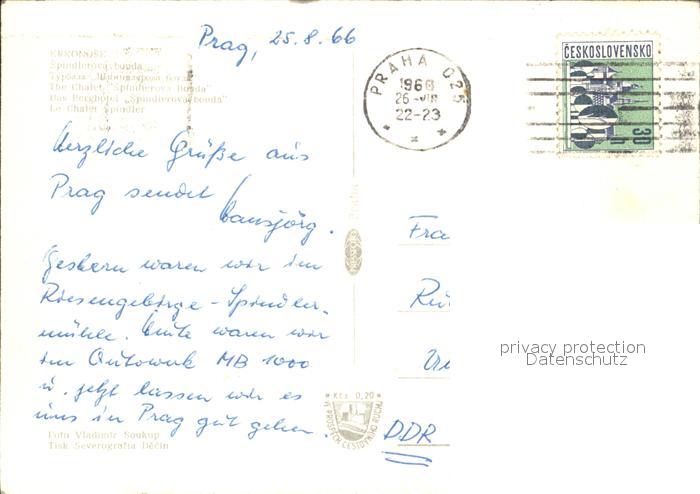 Prag, 25.8.66
KRKONOŠE
Špindlerova bouda
The Chalet "Špindlerova Bouda"
Das Berghotel „Špindlerova bouda"
Le Chalet Špindler
PRAHA 025
1966
26.VIII
22-23
ČESKOSLOVENSKO
30 h
Herzliche Grüße aus
Prag sendet
Hansjörg.
Gestern waren wir im
Riesengebirge - Spindler-
mühle. Heute waren wir
im Autowerk MB 1000
u. jetzt lassen wir es
uns in Prag gut gehen.
Fra
DDR
privacy protection
Datenschutz
Kčs 0,20
VE PROSPĚCH CESTOVNÍHO RUCHU
Foto Vladimír Soukup
Tisk Severografia Děčín